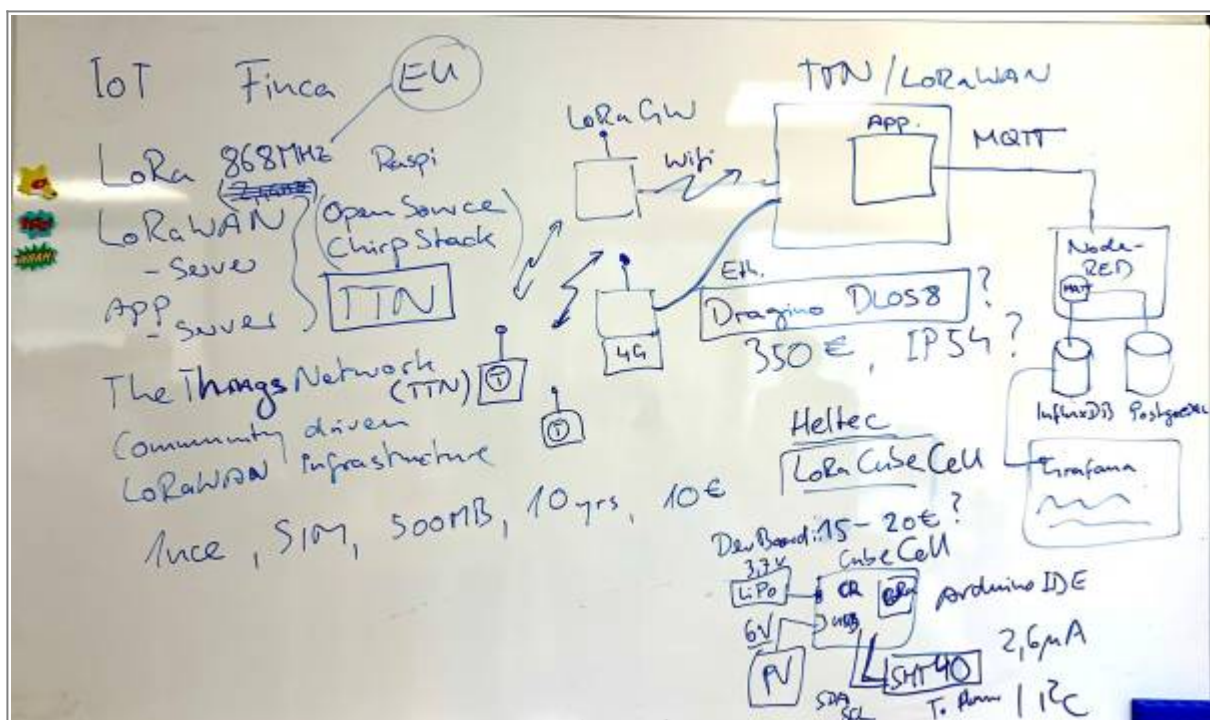 IoT Finca EU
LoRa 868MHz Raspi
LoRaWAN
- Server
APP
- Server
(Open Source
ChirpStack)
TTN
The Things Network
(TTN)
Community driven
LoRaWAN Infrastructure
1nce, SIM, 500MB, 10yrs, 10€
T
T
LoRa GW
Wifi
4G
Eth.
TTN/LoRaWAN
APP.
MQTT
Dragino DLOS8 ?
350€, IP54?
Node-
RED
MQTT
InfluxDB
Grafana
Heltec
LoRa CubeCell
DevBoard: 15-20€?
CubeCell
3,7V
LiPo
LoRa
Arduino IDE
6V
USB
PV
SHT40
2,6µA
SDA
SCL
I²C